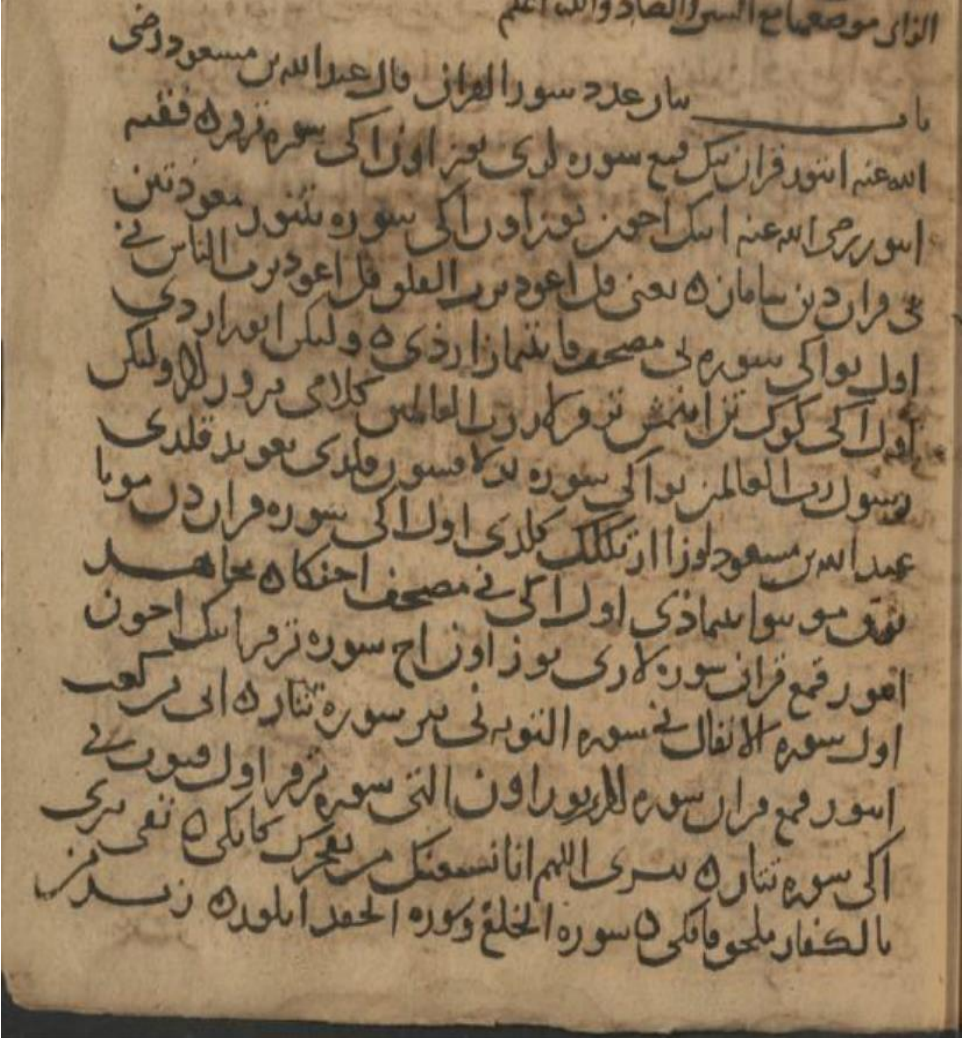 الزاى موضعها مع السين الصاد والله اعلم
باب بيان عدد سور القران قال عبدالله بن مسعود رضى
الله عنه ايتور قران نيك قمع سوره لرى يوز اون اكى سوره ترور ٥ فقيه
ايتور رضى الله عنه انيك اجون يوز اون اكى سوره تيتور معوذتين
نى قران دين ساماز ٥ يعنى قل اعوذ برب الفلق قل اعوذ برب الناس نى
اول بو اكى سوره نى مصحف قا بتيماز اردى ٥ وليكن ايور اردى
اول اكى كوك تن اينمش ترورلار رب العالمين كلامى ترورلار وليكن
رسول رب العالمين بو اكى سوره بيرلا افسون قلدى تعويذ قلدى
عبدالله بن مسعود اوزا كلدى اول اكى سوره قران دن مو يا
توق مو اول اكى نى مصحف ٥ مجاهد
ايتور قمع قران سوره لارى يوز اون اج سوره ترور انيك اجون
اول سوره الانفال نى سوره التوبه نى بير سوره تتار ٥ ابى بن كعب
ايتور قمع قران سوره لارى يوز اون التى سوره ترور اول قنوت نى
اكى سوره تتار ٥ بيرى اللهم انا نستعينك من يفجرك كاتكى ٥ تقى بيرى
بالكفار ملحق قاتكى ٥ سوره الخلع و سوره الحفد اتلور ٥ زيد بن